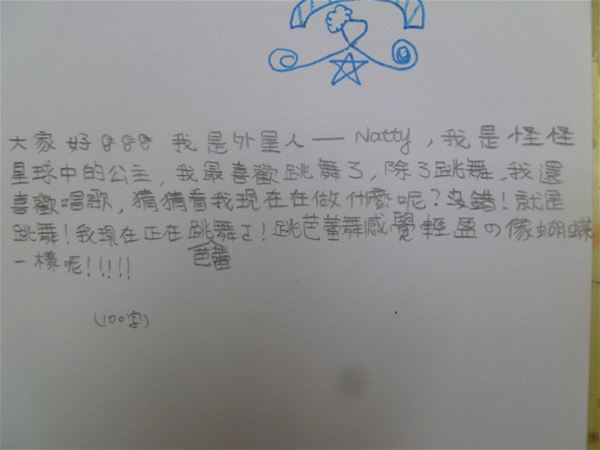 大家好 我是外星人—Natty,我是怪怪
星球中的公主,我最喜歡跳舞了,除了跳舞,我還
喜歡唱歌,猜猜看我現在在做什麼呢?沒錯!就是
跳舞!我現在正在跳芭蕾舞ㄛ!跳芭蕾舞感覺輕盈の像蝴蝶
一樣呢!!!!!
(100字)